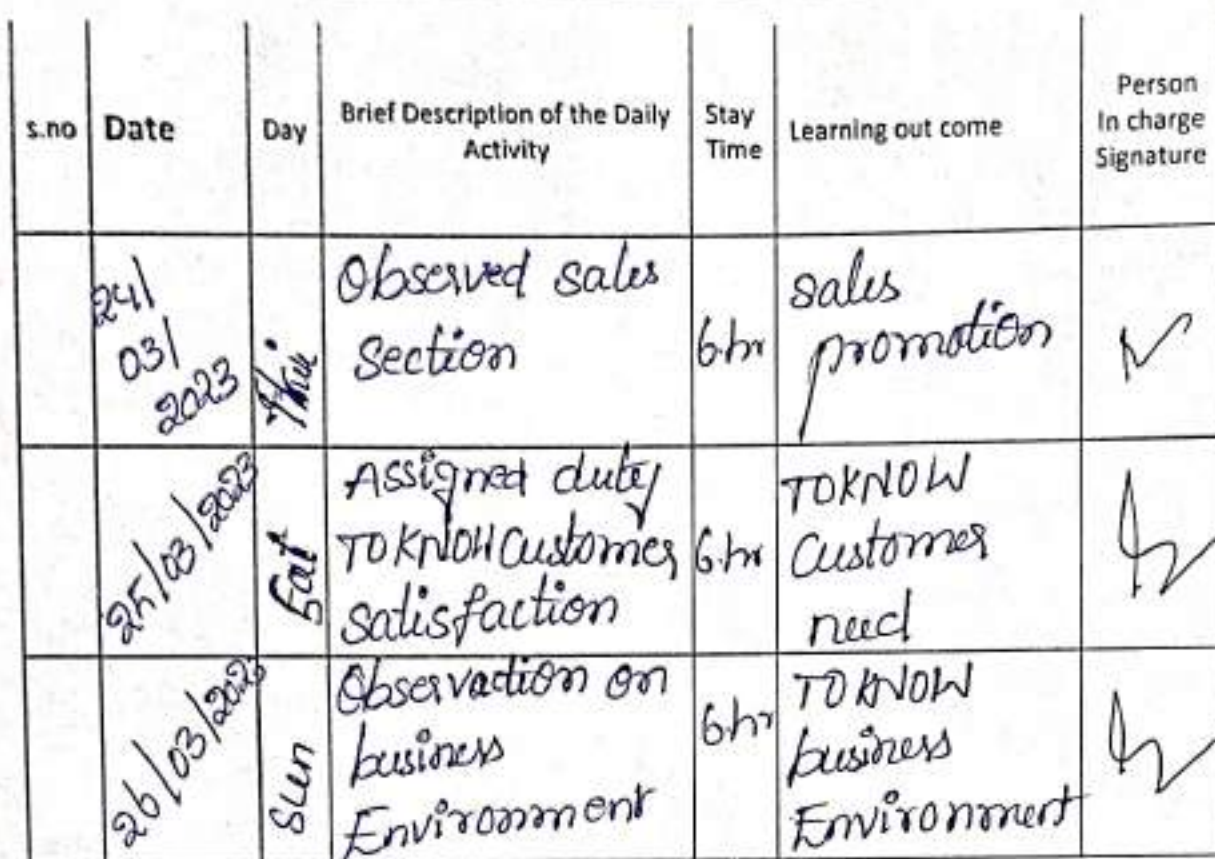 s.no Date Day Brief Description of the Daily Activity Stay Time Learning out come Person In charge Signature
24/03/2023 Observed sales section 6hr sales promotion
25/03/2023 Sat Assigned duty TO KNOW Customer satisfaction 6hr TO KNOW Customer need
26/03/2023 Sun Observation on business Environment 6hr TO KNOW business Environment